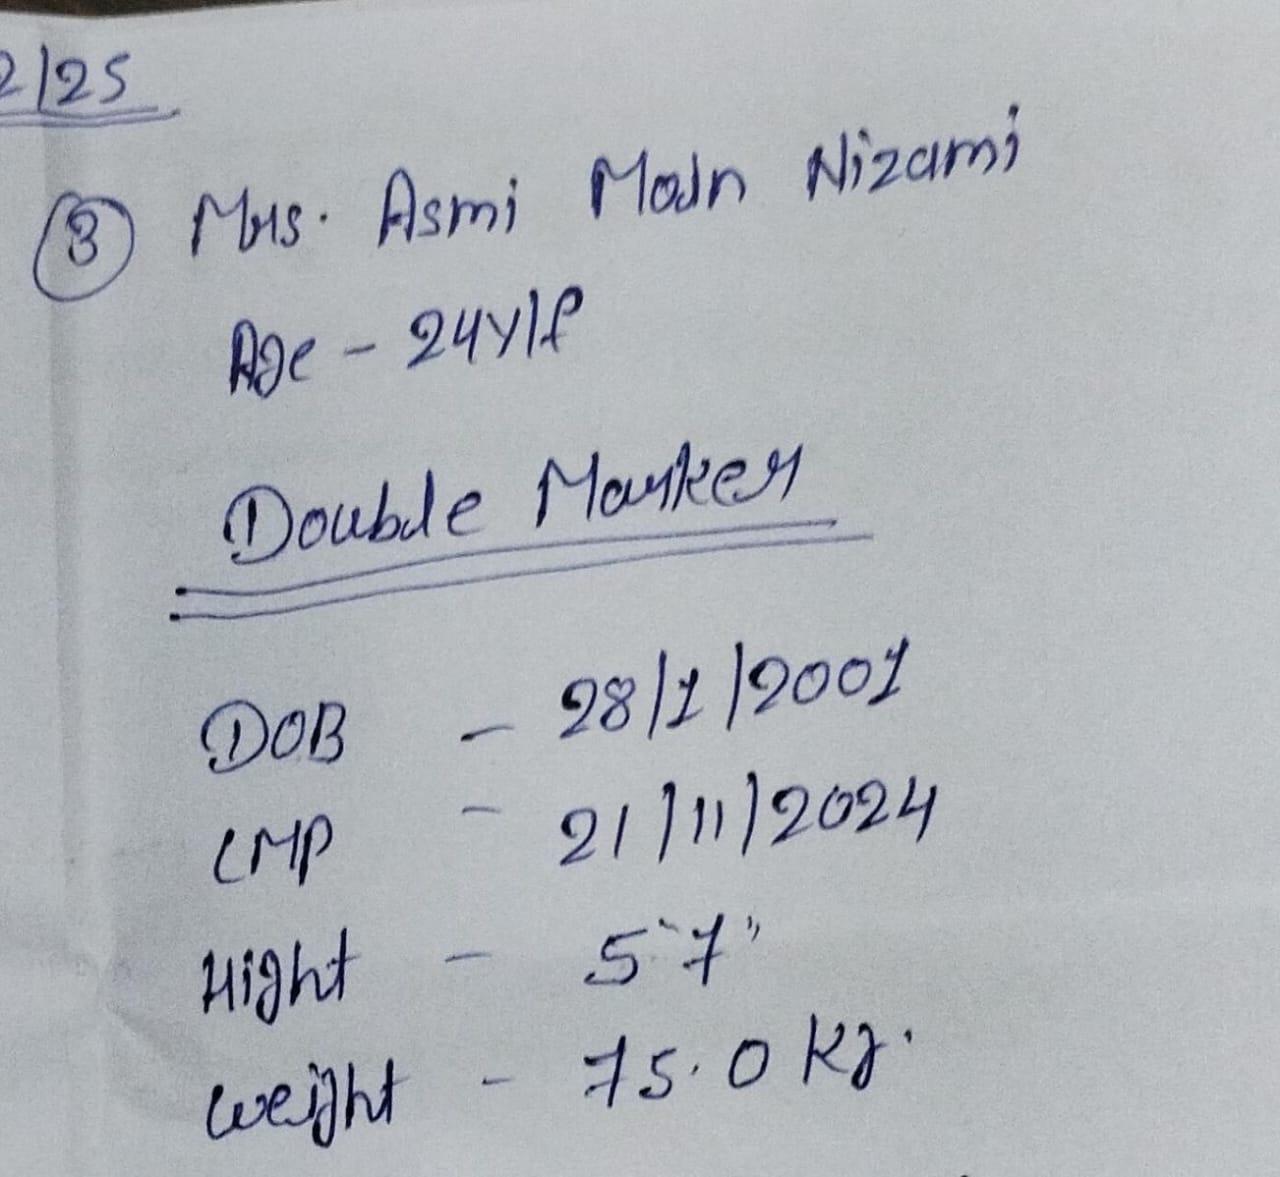 2/25
3 Mrs. Asmi Moin Nizami
Age - 24Y/f
Double Marker
DOB - 28/1/2001
LMP - 21/11/2024
Hight - 5'7"
weight - 75.0 kg.